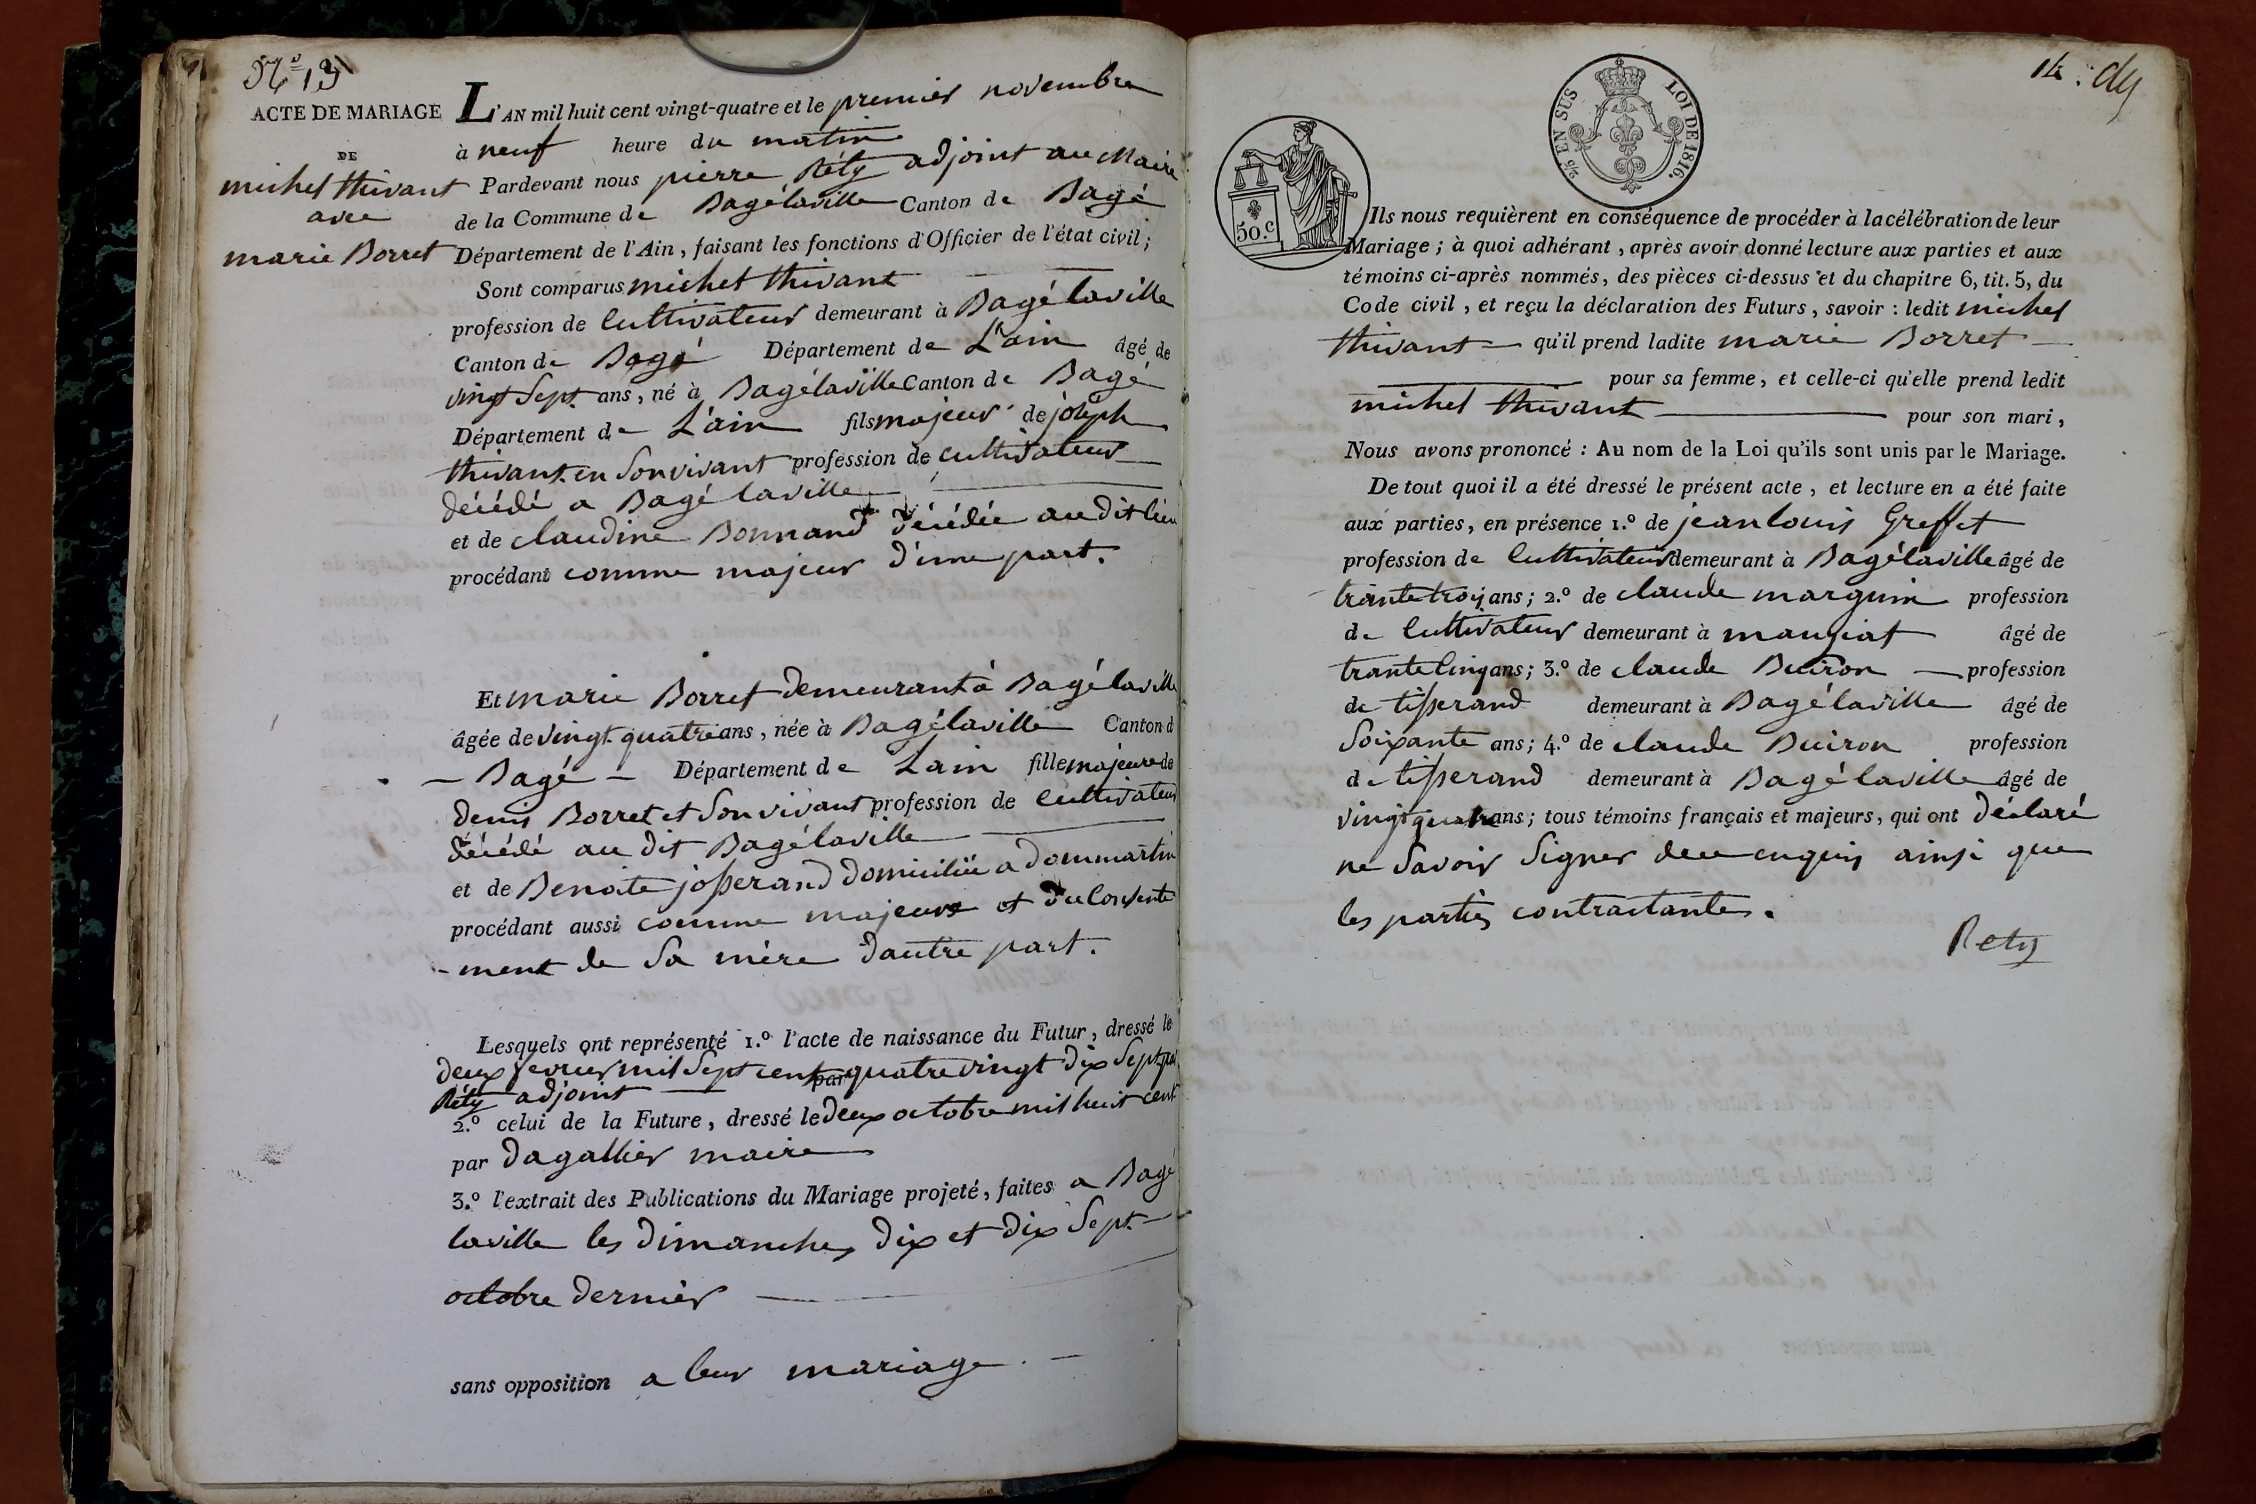 N.º 13
ACTE DE MARIAGE
DE
michel thivant
avec
marie Borret
L'AN mil huit cent vingt-quatre et le premier novembre
à neuf heure du matin
Pardevant nous pierre Réty adjoint au Maire
de la Commune de Bagélaville Canton de Bagé
Département de l'Ain, faisant les fonctions d'Officier de l'état civil;
Sont comparus michel thivant
profession de Cultivateur demeurant à Bagé laville
Canton de Bagé Département de L'ain âgé de
vingt Sept ans, né à Bagélaville Canton de Bagé
Département de L'ain fils majeur de joseph
thivant en Son vivant profession de cultivateur
décédé a Bagé laville
et de claudine Bonnand décédée au dit lieu
procédant comme majeur d'une part.
Et marie Borret demeurant à Bagélaville
âgée de vingt quatre ans, née à Bagélaville Canton d
- Bagé - Département de Lain fille majeure de
denis Borret et Son vivant profession de Cultivateur
décédé au dit Bagélaville
et de Benoite josserand domiciliée a dommartin
procédant aussi comme majeure et du Consente
-ment de Sa mère dautre part.
Lesquels ont représenté 1.º l'acte de naissance du Futur, dressé le
deux fevrier mil Sept cent quatre vingt dix Sept par
par
Réty adjoint
2.º celui de la Future, dressé le deux octobre mil huit cent
par dagallier maire
3.º l'extrait des Publications du Mariage projeté, faites a Bagé
laville les dimanches dix et dix Sept
octobre dernier
sans opposition a leur mariage.
14
50.C
2/5 EN SUS LOI DE 1816.
Ils nous requièrent en conséquence de procéder à la célébration de leur
Mariage; à quoi adhérant, après avoir donné lecture aux parties et aux
témoins ci-après nommés, des pièces ci-dessus et du chapitre 6, tit. 5, du
Code civil, et reçu la déclaration des Futurs, savoir : ledit michel
thivant qu'il prend ladite marie Borret
pour sa femme, et celle-ci qu'elle prend ledit
michel thivant pour son mari,
Nous avons prononcé : Au nom de la Loi qu'ils sont unis par le Mariage.
De tout quoi il a été dressé le présent acte, et lecture en a été faite
aux parties, en présence 1.º de jean louis Greffet
profession de Cultivateur demeurant à Bagélaville âgé de
trante troy ans; 2.º de claude marguin profession
de Cultivateur demeurant à manziat âgé de
trante Cinq ans; 3.º de claude Buiron profession
de tisserand demeurant à Bagélaville âgé de
Soixante ans; 4.º de claude Buiron profession
de tisserand demeurant à Bagélaville âgé de
vingt quatre ans; tous témoins français et majeurs, qui ont déclaré
ne Savoir Signer de ce enquis ainsi que
les parties contractantes.
Rety